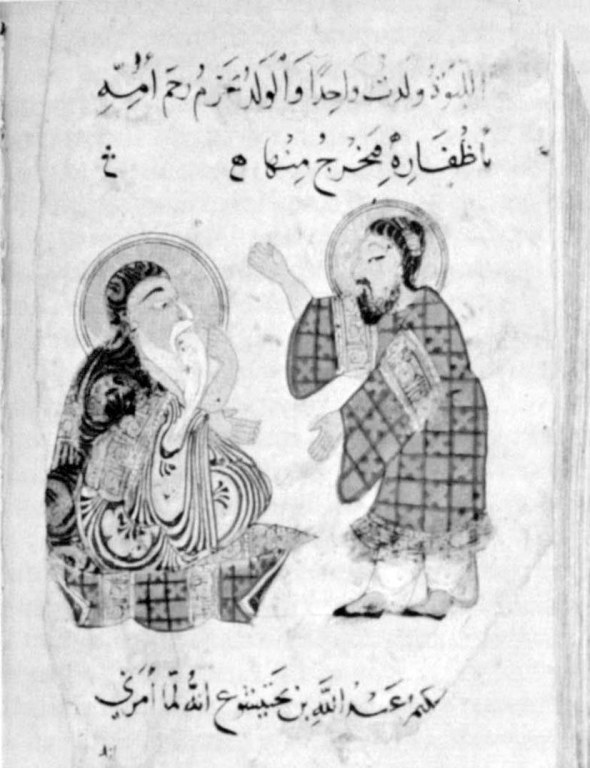 اللبوة ولدت واحدًا وَالوَلَدُ خَزَمَ رحَمَ أُمِّهِ
بأظْفَارِهِ فَخَرَجَ مِنْهَا ه
عَبْدُ اللَّهِ بن بختيشوع انهُ لمّا أمَرَني